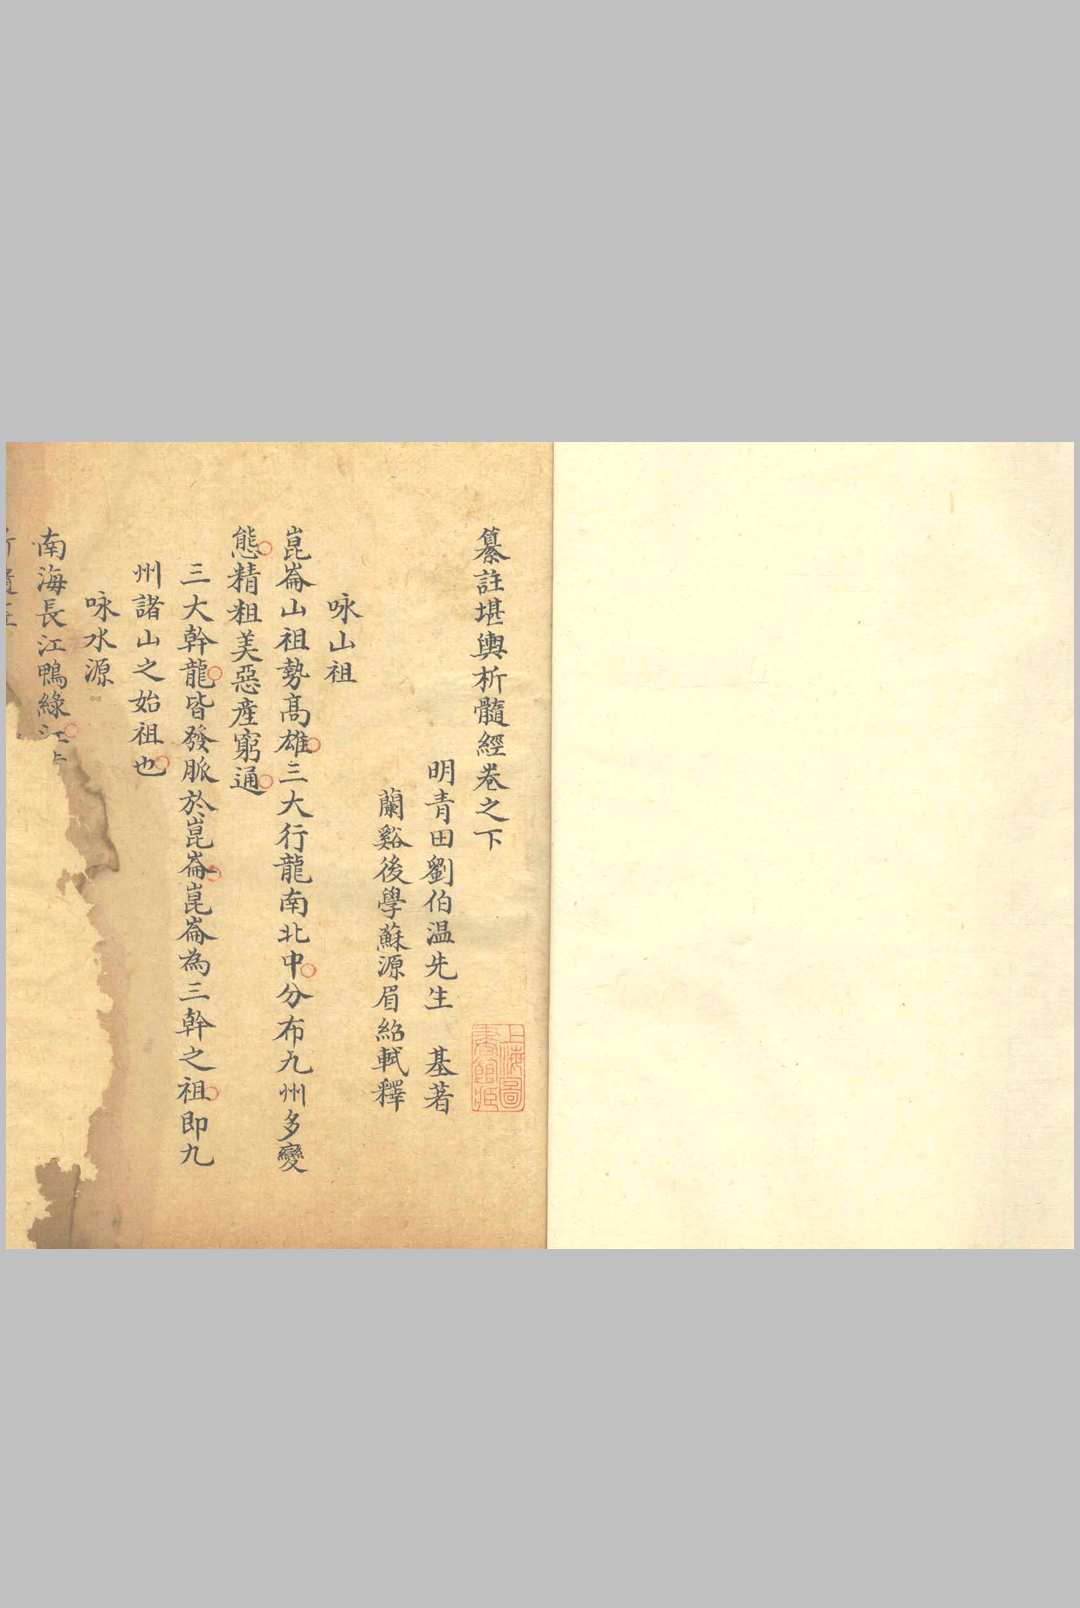 纂註堪輿析髓經卷之下
明青田劉伯温先生　基著
蘭谿後學蘇源眉紹軾釋
上海圖書館藏
咏山祖
崑崙山祖勢髙雄三大行龍南北中分布九州多變
態精粗美惡産窮通
三大幹龍皆發脈於崑崙崑崙為三幹之祖即九
州諸山之始祖也
咏水源
南海長江鴨綠江